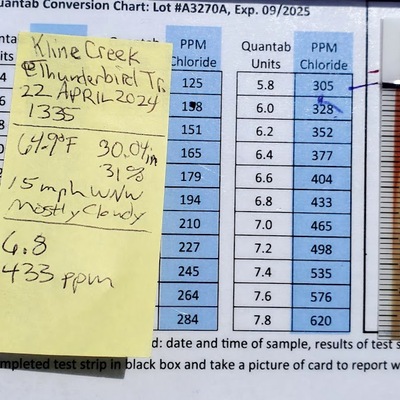 uantab Conversion Chart: Lot #A3270A, Exp. 09/2025
Kline Creek
@Thunderbird Tr.
22 APRIL 2024
1335
64.9°F 30.04 in
31%
15 mph WNW
Mostly Cloudy
6.8
433 ppm
PPM Quantab PPM
Chloride Units Chloride
125 5.8 305
138 6.0 328
151 6.2 352
165 6.4 377
179 6.6 404
194 6.8 433
210 7.0 465
227 7.2 498
245 7.4 535
264 7.6 576
284 7.8 620
d: date and time of sample, results of test s
mpleted test strip in black box and take a picture of card to report w